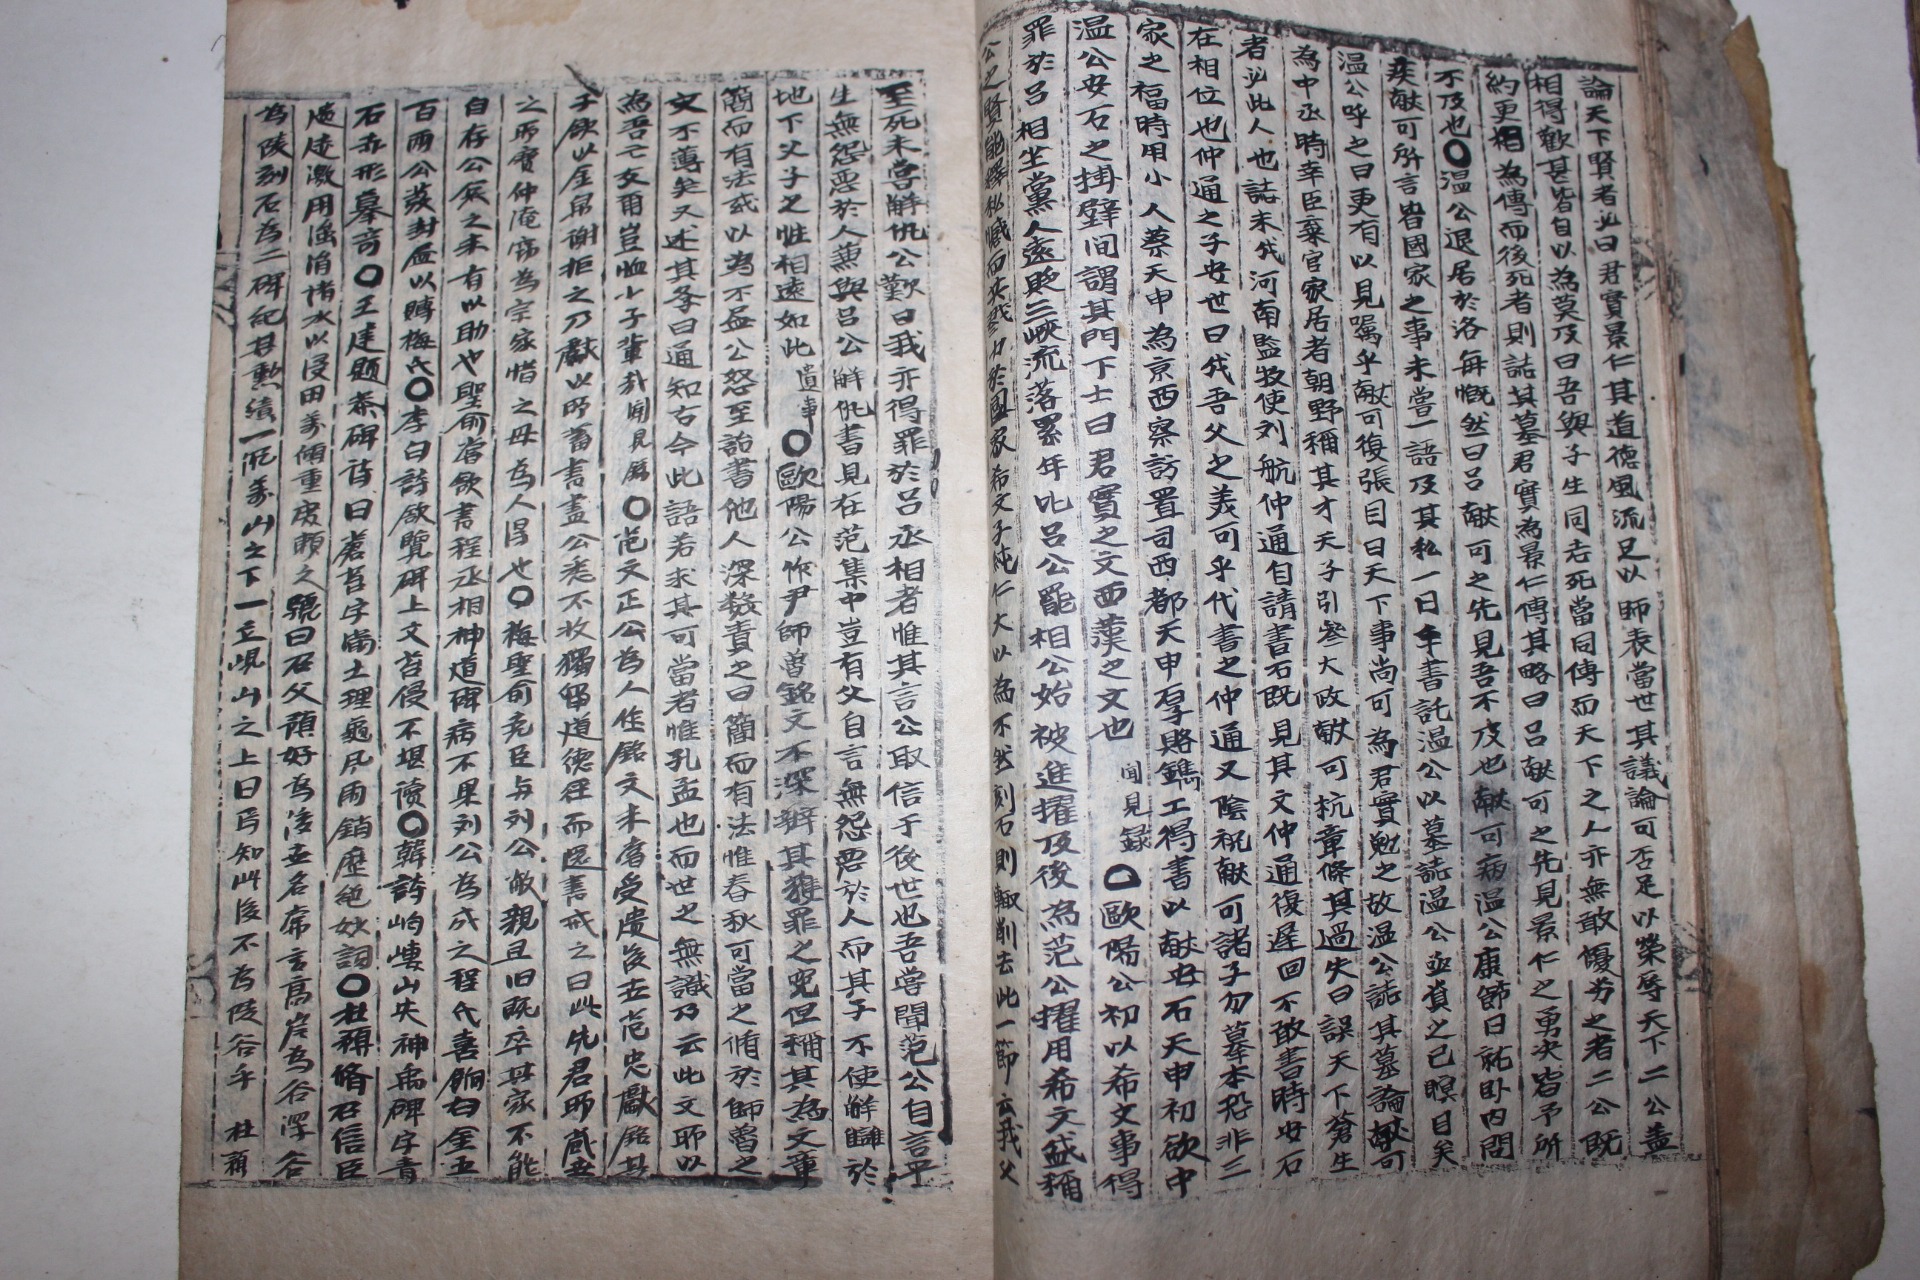 論天下賢者必曰君實景仁其道德風流足以師表當世其議論可否足以榮辱天下二公蓋
相得歡甚皆自以為莫及曰吾與子生同志死當同傳而天下之人亦無敢優劣之者二公既
約更相為傳而後死者則誌其墓君實為景仁傳其略曰呂献可之先見景仁之勇决皆予所
不及也〇温公退居於洛每慨然曰呂献可之先見吾不及也献可病温公康節日訢卧内問
疾献可所言皆國家之事未嘗一語及其私一日手書託温公以墓誌温公亟省之已瞑目矣
温公呼之曰更有以見屬乎献可復張目曰天下事尚可為君實勉之故温公誌其墓論献可
為中丞時幸臣棄官家居者朝野稱其才天子引參大政献可抗章條其過失曰誤天下蒼生
者必此人也誌未成河南監牧使刘航仲通自請書石既見其文仲通復遲回不敢書時安石
在相位也仲通之子安世曰成吾父之美可乎代書之仲通又陰祝献可諸子勿摹本恐非三
家之福時用小人蔡天申為京西察訪置司西都天申厚賂鐫工得書以献安石天申初欲中
温公安石之掛壁間謂其門下士曰君實之文西漢之文也 聞見録 〇歐陽公初以希文事得
罪於呂相坐黨人遠貶三峽流落累年比呂公罷相公始被進擢及後為范公擢用希文盛稱
公之賢能釋私憾而共戮力於國家希文子純仁大以為不然刻石則輙削去此一節云我父
至死未嘗解仇公歎曰我亦得罪於呂丞相者惟其言公取信于後世也吾嘗聞范公自言平
生無怨惡於人兼與呂公解仇書見在范集中豈有父自言無怨惡於人而其子不使解讎於
地下父子之性相遠如此 遺事 〇歐陽公作尹師魯銘文不深辨其獲罪之寃但稱其為文章
簡而有法或以為不盡公怒至詒書他人深數責之曰簡而有法惟春秋可當之脩於師魯之
文不薄矣又述其孝曰通知古今此語若求其可當者惟孔孟也而世之無識乃云此文耶以
為吾亡友爾豈恤小子輩哉 聞見錄 〇范文正公為人作銘文未嘗受遺後在范忠獻銘其
子欲以金帛謝拒之乃獻以所蓄書畫公悉不收獨留道德經而還書戒之曰此先君所蔵世
之所寶仲淹竊為宗家惜之毋為人得也〇梅聖俞堯臣与刘公敞親且旧既卒其家不能
自存公厥之未有以助也聖俞嘗欲書程丞相神道碑病不果刘公為成之程氏喜餉白金五
百兩公發封盡以賻梅氏〇李白詩欲覽碑上文苔侵不堪讀〇韓詩岣嶁山尖神禹碑字青
石赤形摹竒〇王建題蔡碑詩曰蒼苔字滿土理龜风雨銷磨絶妙詞〇杜預脩召信臣
遺迹激用滍淯諸水以浸田萬傾重庶頼之號曰召父預好為後世名常言髙岸為谷深谷
為陵刻石為二碑紀其勲績一沉萬山之下一立峴山之上曰焉知此後不為陵谷乎 杜預